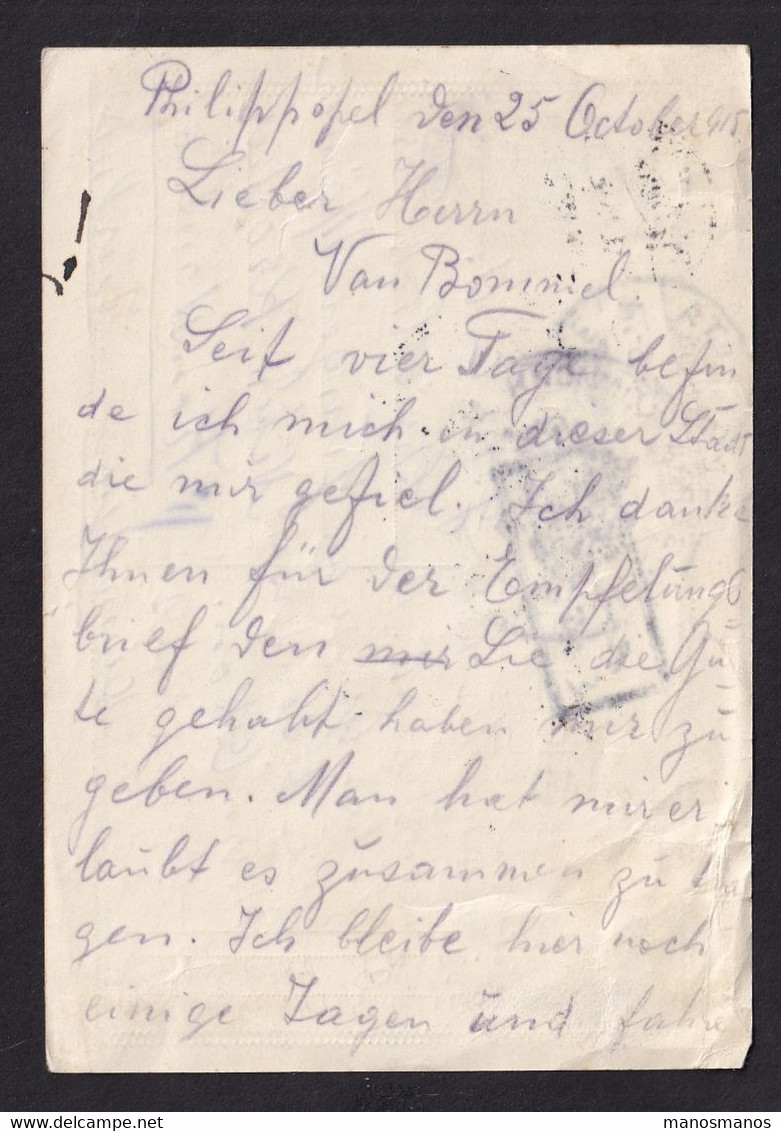 Philippopel den 25 October 915
Lieber Herrn
Van Bommel.
Seit vier Tage befin
de ich mich in dieser Stadt
die mir gefiel. Ich danke
Ihnen für der Empfelungs
brief den mir Sie die Gü
te gehabt haben mir zu
geben. Man hat mir er
laubt es zusammen zu
gen. Ich bleibe hier noch
einige Tagen und fahre
manosmanos